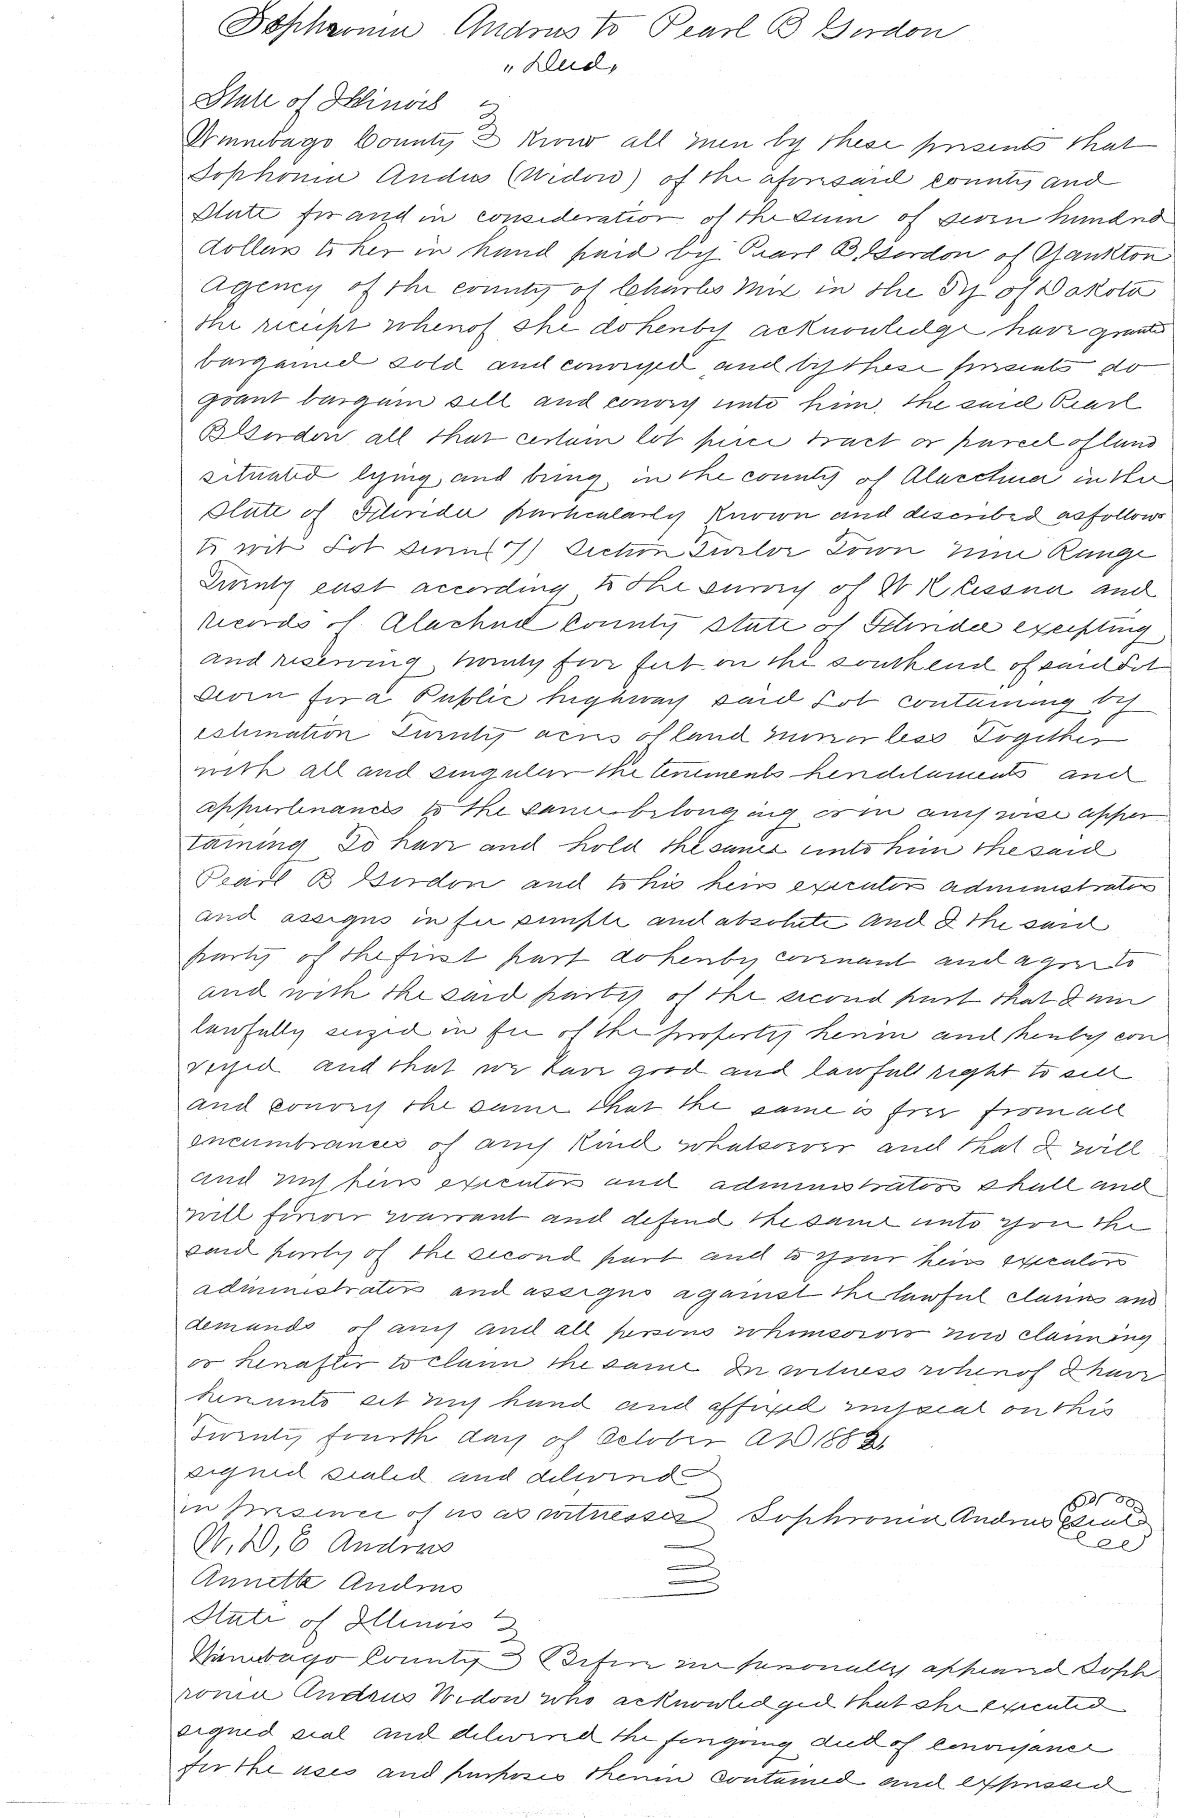 Sophronia Andrus to Pearl B Gordon
"Deed,
State of Illinois
Winnebago County Know all men by these presents that
Sophonia Andus (Widow) of the aforesaid county and
State for and in consideration of the sum of seven hundred
dollars to her in hand paid by Pearl B. Gordon of Yankton
Agency of the county of Charles Mix in the Ty of Dakota
the receipt whereof she do hereby acknowledge have granted
bargained sold and conveyed and by these presents do
grant bargain sell and convey unto him, the said Pearl
B Gordon all that certain lot piece tract or parcel of land
situated lying, and being, in the county of Alacchua in the
State of Florida particularly known and described as follows
to wit Lot seven (7) Section Twelve Town nine Range
Twenty east according to the survey of W K Cessna and
records of Alachua County State of Florida excepting
and reserving twenty five feet on the south end of said Lot
seven for a Public highway said Lot containing by
estimation Twenty acres of land more or less Together
with all and singular the tenements hereditaments and
appurtenances to the same belonging or in any wise apper
taining To have and hold the same unto him the said
Pearl B Gordon and to his heirs executors administrators
and assigns in fee simple and absolute and I the said
party of the first part do hereby covenant and agree to
and with the said party of the second part that I am
lawfully seized in fee of the property herein and hereby con
veyed and that we have good and lawfull right to sell
and convey the same that the same is free from all
encumbrances of any Kind whatsoever and that I will
and my heirs executors and administrators shall and
will forever warrant and defend the same unto you the
said party of the second part and to your heirs executors
administrators and assigns against the lawful claims and
demands of any and all persons whomsoever now claiming
or hereafter to claim the same In witness whereof I have
hereunto set my hand and affixed my seal on this
Twenty fourth day of October AD 1882
signed sealed and delivered
in presence of us as witnesses Sophronia Andrus Seal
W, D, E Andrus
Annette Andrus
State of Illinois
Winnebago County Before me personally appeared Soph
ronia Andrus Widow who acknowledged that she executed
signed seal and delivered the foregoing deed of conveyance
for the uses and purposes therein contained and expressed